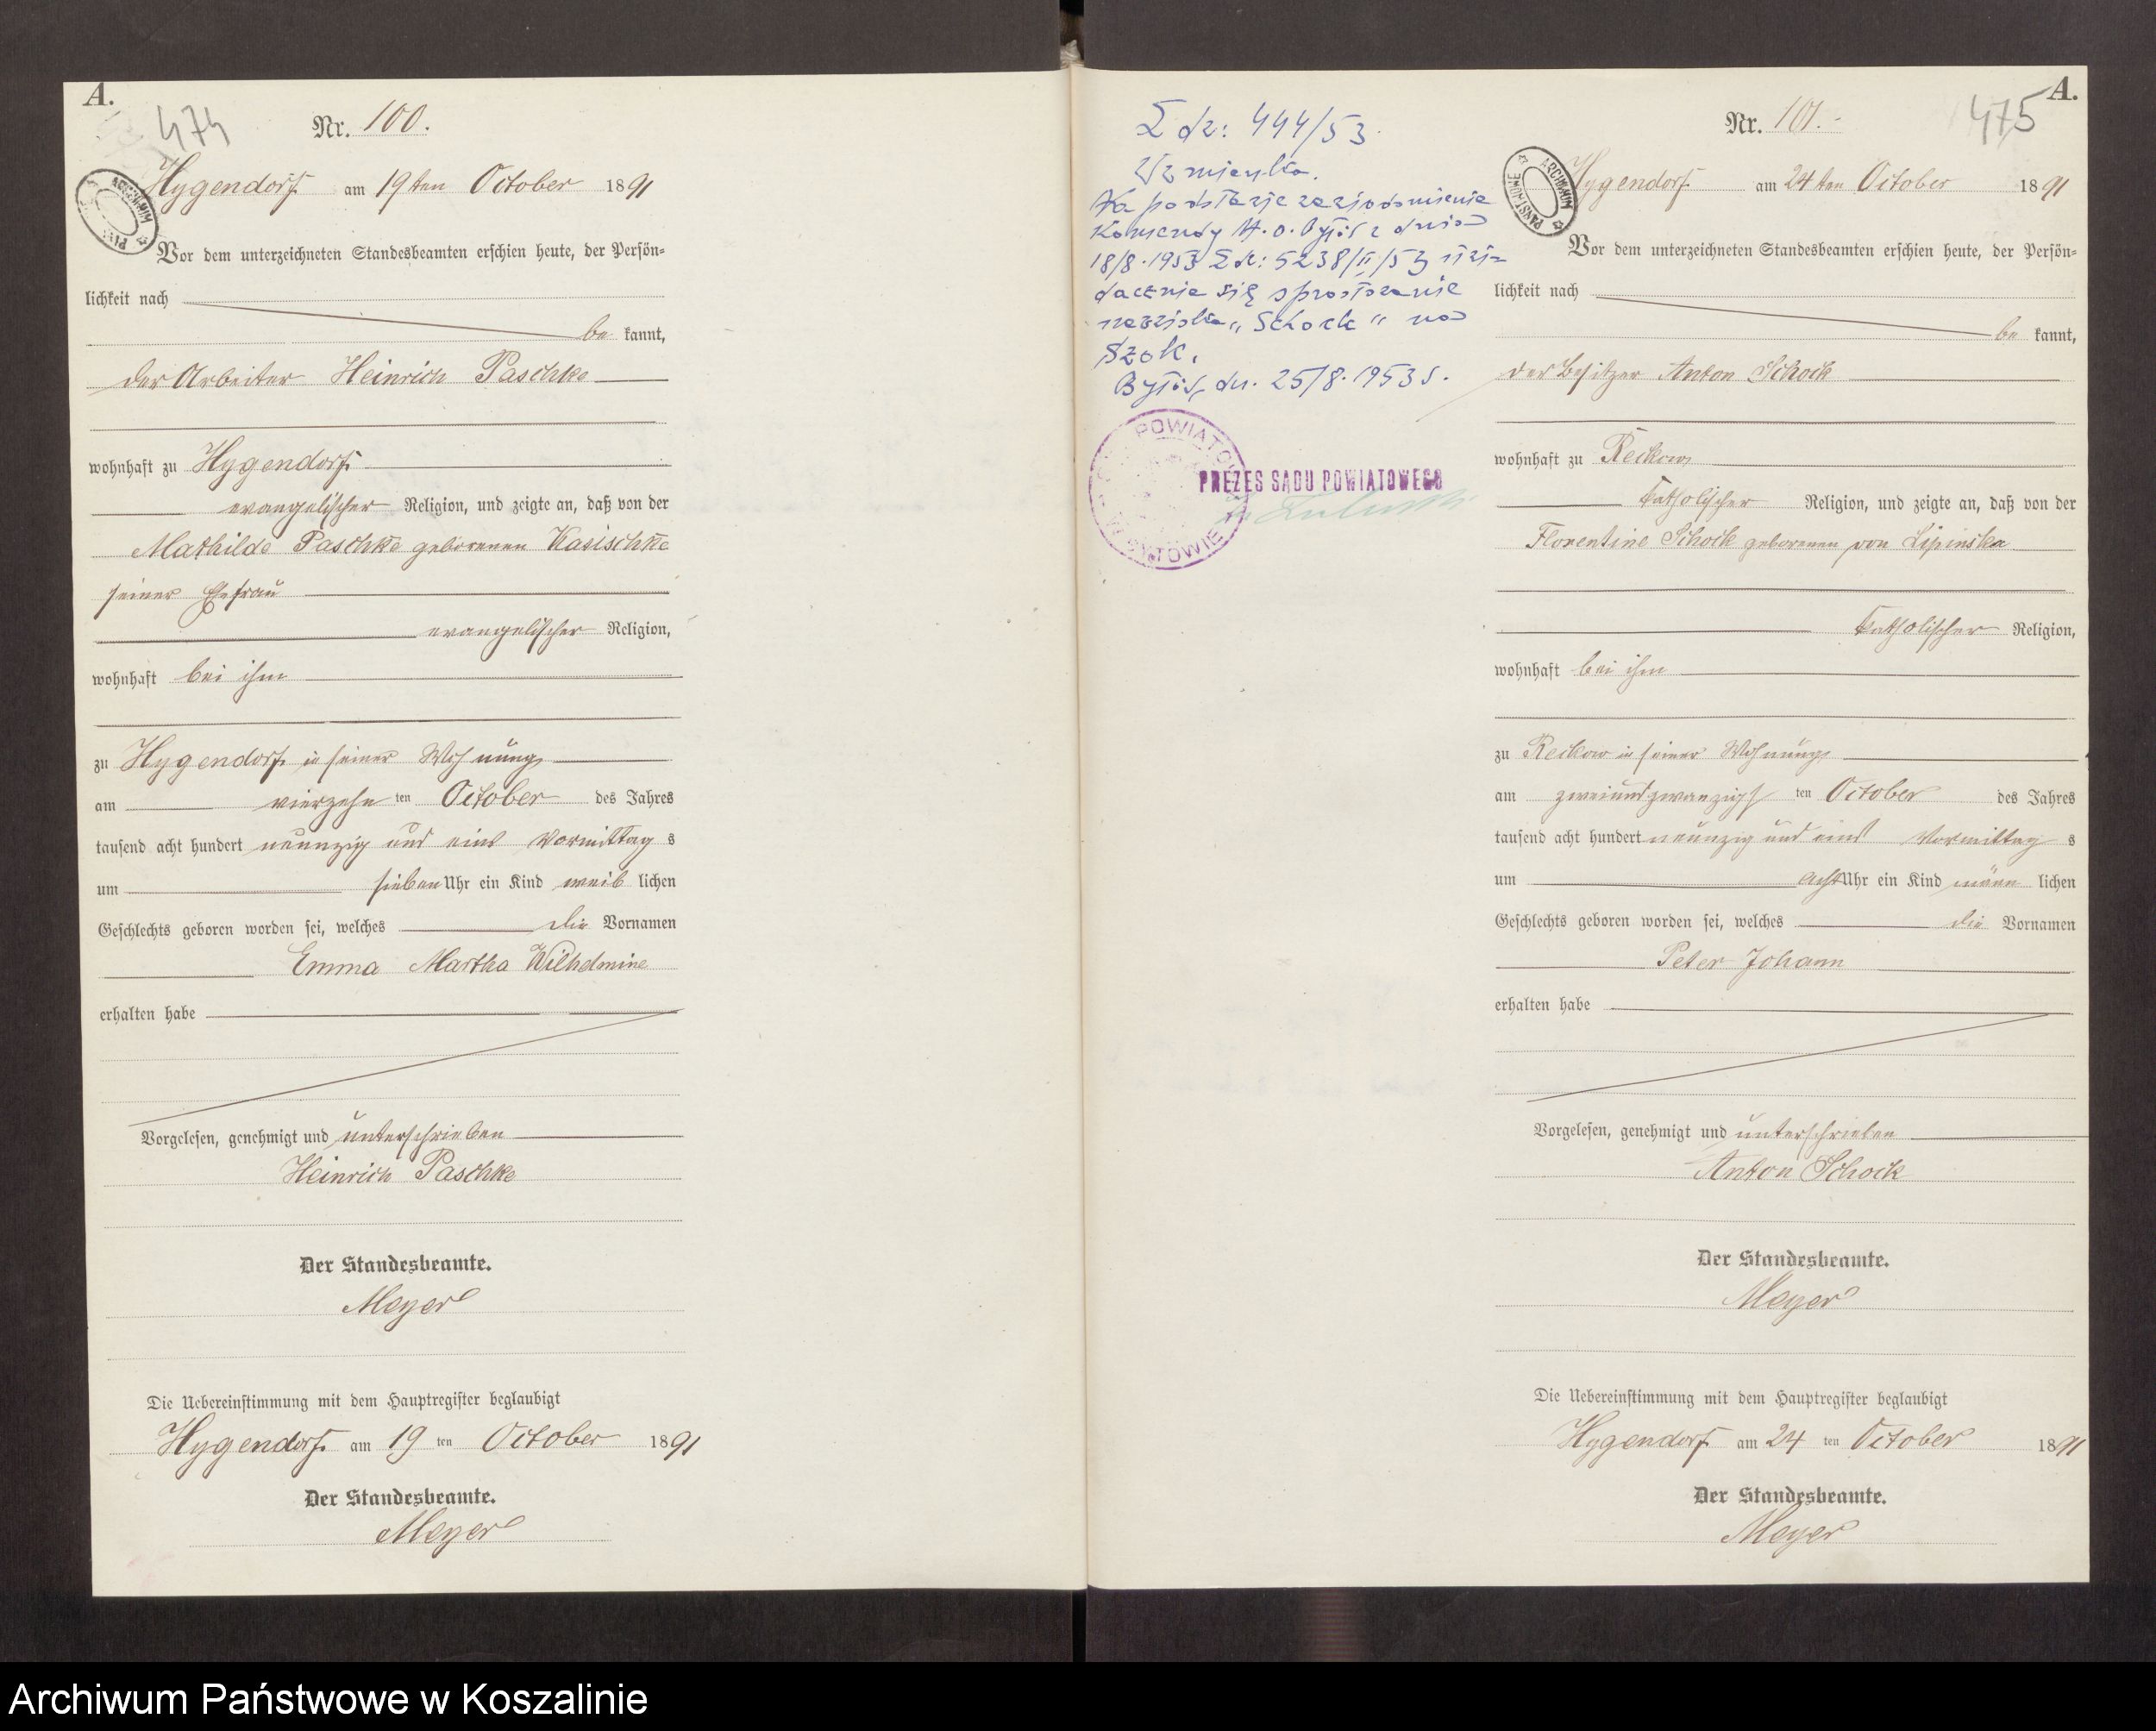 A.
474
Nr. 100.
Hygendorf am 19ten October 1891
Vor dem unterzeichneten Standesbeamten erschien heute, der Persön-
lichkeit nach
be kannt,
der Arbeiter Heinrich Paschke
wohnhaft zu Hygendorf
evangelischer Religion, und zeigte an, daß von der
Mathilde Paschke geborenen Kasischke
seiner Ehefrau
evangelischer Religion,
wohnhaft bei ihm
zu Hygendorf in seiner Wohnung
am vierzehn ten October des Jahres
tausend acht hundert neunzig und eins Vormittag s
um sieben Uhr ein Kind weib lichen
Geschlechts geboren worden sei, welches die Vornamen
Emma Martha Wilhelmine
erhalten habe
Vorgelesen, genehmigt und unterschrieben
Heinrich Paschke
Der Standesbeamte.
Meyer
Die Uebereinstimmung mit dem Hauptregister beglaubigt
Hygendorf am 19 ten October 1891
Der Standesbeamte.
Meyer
L dz: 444/53
Wzmianka.
Na podstawie zawiadomienia
Komendy M.O. Bytów z dnia
18/8.1953 L dz: 5238/II/53
się sprostowanie
nazwiska "Schock" na
Szok.
Bytów, dn. 25/8.1953 r.
POWIATOW
W BYTOWIE
PREZES SĄDU POWIATOWEGO
A.
475
Nr. 101.
ARCHIWUM PAŃSTWOWE
Hygendorf am 24ten October 1891
Vor dem unterzeichneten Standesbeamten erschien heute, der Persön-
lichkeit nach
be kannt,
der Besitzer Anton Schock
wohnhaft zu Reckow
katholischer Religion, und zeigte an, daß von der
Florentine Schock geborenen von Lipinska
katholischer Religion,
wohnhaft bei ihm
zu Reckow in seiner Wohnung
am zweiundzwanzigs ten October des Jahres
tausend acht hundert neunzig und eins Vormittag s
um acht Uhr ein Kind männ lichen
Geschlechts geboren worden sei, welches die Vornamen
Peter Johann
erhalten habe
Vorgelesen, genehmigt und unterschrieben
Anton Schock
Der Standesbeamte.
Meyer
Die Uebereinstimmung mit dem Hauptregister beglaubigt
Hygendorf am 24 ten October 1891
Der Standesbeamte.
Meyer
Archiwum Państwowe w Koszalinie